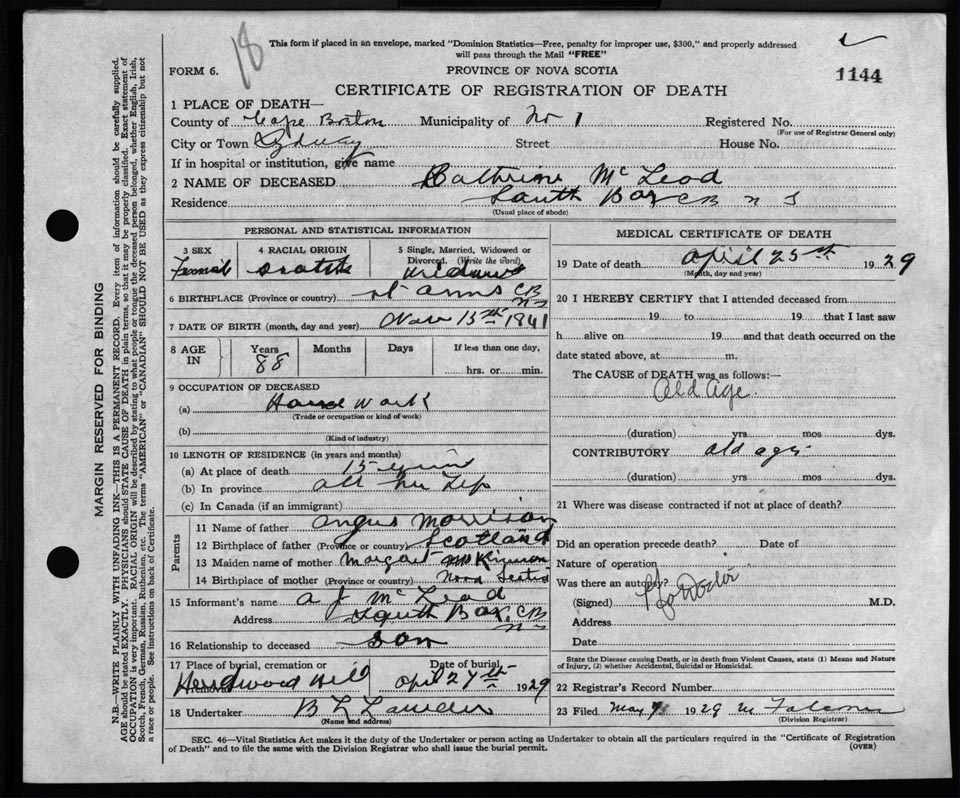 18
This form if placed in an envelope, marked "Dominion Statistics—Free, penalty for improper use, $300," and properly addressed
will pass through the Mail "FREE"
FORM 6.
PROVINCE OF NOVA SCOTIA
1144
CERTIFICATE OF REGISTRATION OF DEATH
1 PLACE OF DEATH—
County of Cape Breton Municipality of No 1 Registered No.
(For use of Registrar General only)
City or Town Sydney Street House No.
If in hospital or institution, give name
2 NAME OF DECEASED Catherine McLeod
Residence South Bar CB N S
(Usual place of abode)
PERSONAL AND STATISTICAL INFORMATION
3 SEX 4 RACIAL ORIGIN 5 Single, Married, Widowed or
Divorced. (Write the word)
Female Scotch Widow
6 BIRTHPLACE (Province or country) St Anns CB
NS
7 DATE OF BIRTH (month, day and year) Nov 15th 1841
8 AGE
IN
Years Months Days If less than one day,
88
hrs. or min.
9 OCCUPATION OF DECEASED
(a) House Work
(Trade or occupation or kind of work)
(b)
(Kind of industry)
10 LENGTH OF RESIDENCE (in years and months)
(a) At place of death 15 years
(b) In province all her life
(c) In Canada (if an immigrant)
Parents
11 Name of father Angus Morrison
12 Birthplace of father (Province or country) Scotland
13 Maiden name of mother Margret
14 Birthplace of mother (Province or country) Nova Scotia
15 Informant's name A J McLeod
Address South Bar, CB
NS
16 Relationship to deceased Son
17 Place of burial, cremation or Date of burial
removal
Hardwood Hill April 27th 1929
18 Undertaker
(Name and address)
MEDICAL CERTIFICATE OF DEATH
19 Date of death April 25th 1929
(Month, day and year)
20 I HEREBY CERTIFY that I attended deceased from
19 to 19 that I last saw
h alive on 19 and that death occurred on the
date stated above, at m.
The CAUSE of DEATH was as follows:—
Old Age
(duration) yrs mos dys.
CONTRIBUTORY old age
(duration) yrs mos dys.
21 Where was disease contracted if not at place of death?
Did an operation precede death? Date of
Nature of operation
Was there an autopsy?
(Signed) M.D.
Address
Date
State the Disease causing Death, or in death from Violent Causes, state (1) Means and Nature
of Injury, (2) whether Accidental, Suicidal or Homicidal.
22 Registrar's Record Number
23 Filed May 1929
(Division Registrar)
SEC. 46—Vital Statistics Act makes it the duty of the Undertaker or person acting as Undertaker to obtain all the particulars required in the "Certificate of Registration
of Death" and to file the same with the Division Registrar who shall issue the burial permit.
(OVER)
MARGIN RESERVED FOR BINDING
N.B.—WRITE PLAINLY WITH UNFADING INK—THIS IS A PERMANENT RECORD. Every item of information should be carefully supplied.
AGE should be stated EXACTLY. PHYSICIANS should STATE CAUSE OF DEATH in plain terms, so that it may be properly classified. Exact statement of
OCCUPATION is very important. RACIAL ORIGIN will be described by stating to what people or tongue the deceased person belonged, whether English, Irish,
Scotch, French, German, Russian, Ruthenian, etc. The terms "AMERICAN" or "CANADIAN" SHOULD NOT BE USED as they express citizenship but not
a race or people. See instructions on back of Certificate.